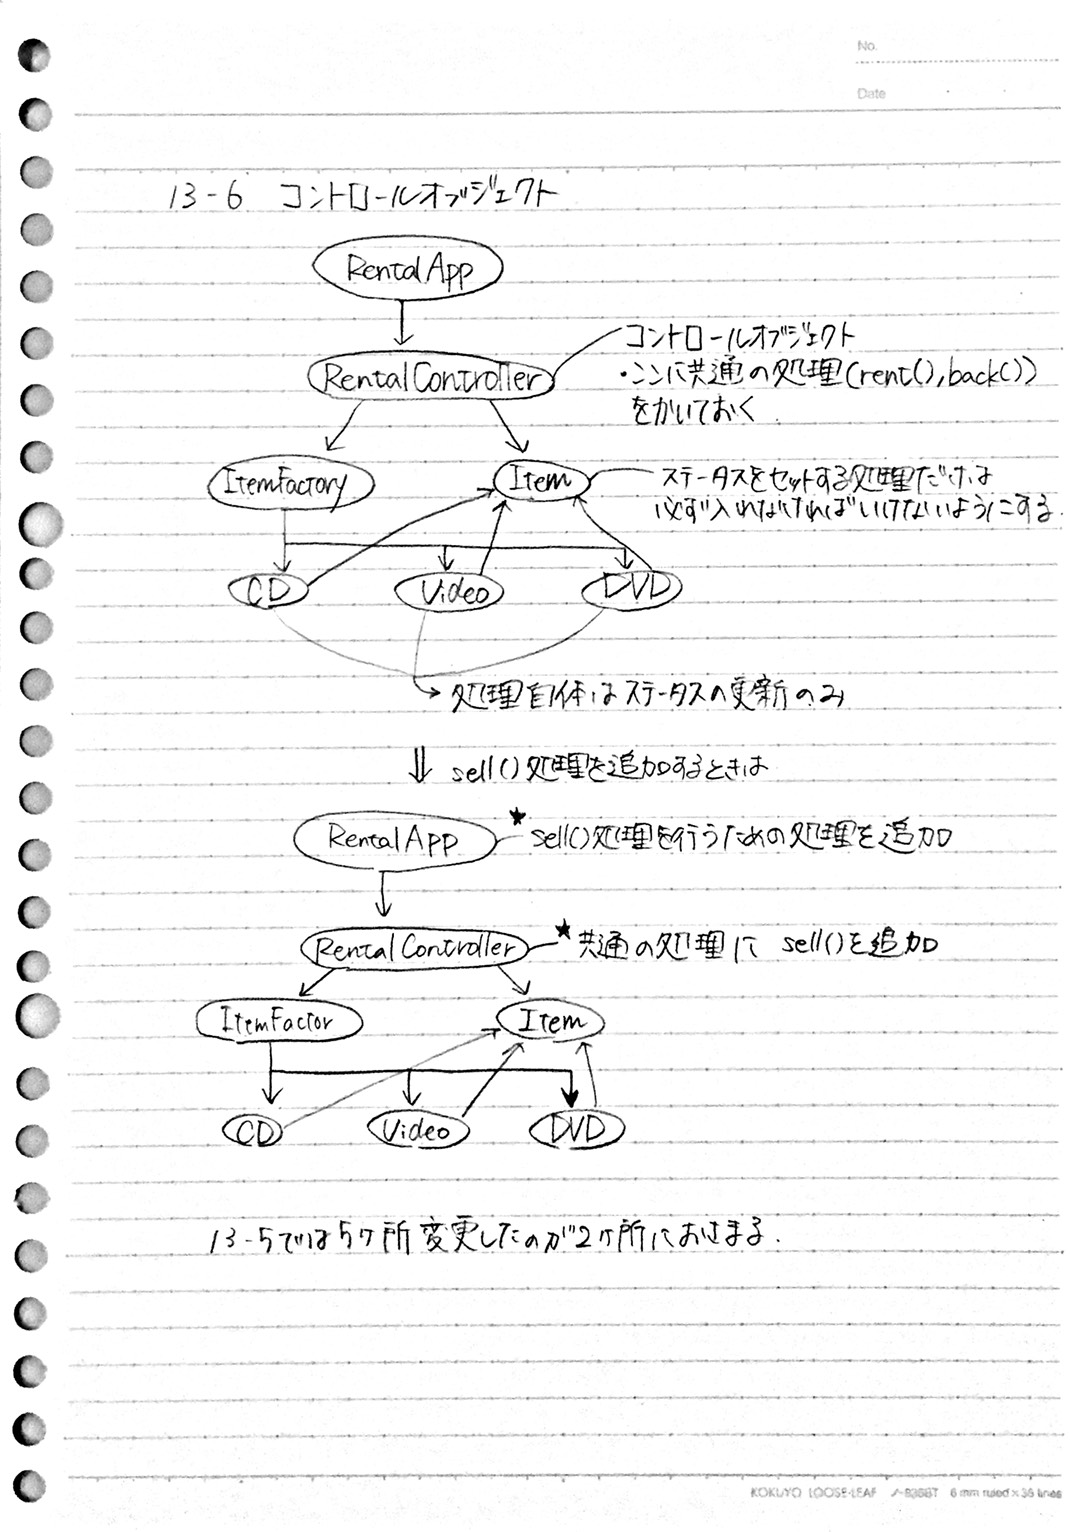 No.
Date
13-6 コントロールオブジェクト
RentalApp
コントロールオブジェクト
RentalController
・ここに共通の処理(rent(),back())
をかいておく.
ItemFactory
Item
ステータスをセットする処理だけは
必ず入れなければいけないようにする.
CD
Video
DVD
処理自体はステータスの更新のみ
⇓ sell()処理を追加するときは
RentalApp
★ sell()処理を行うための処理を追加
RentalController
★ 共通の処理に sell()を追加
ItemFactor
Item
CD
Video
DVD
13-5では5ヶ所変更したのが2ヶ所におさまる.
KOKUYO LOOSE-LEAF ノ-836BT 6 mm ruled × 36 lines